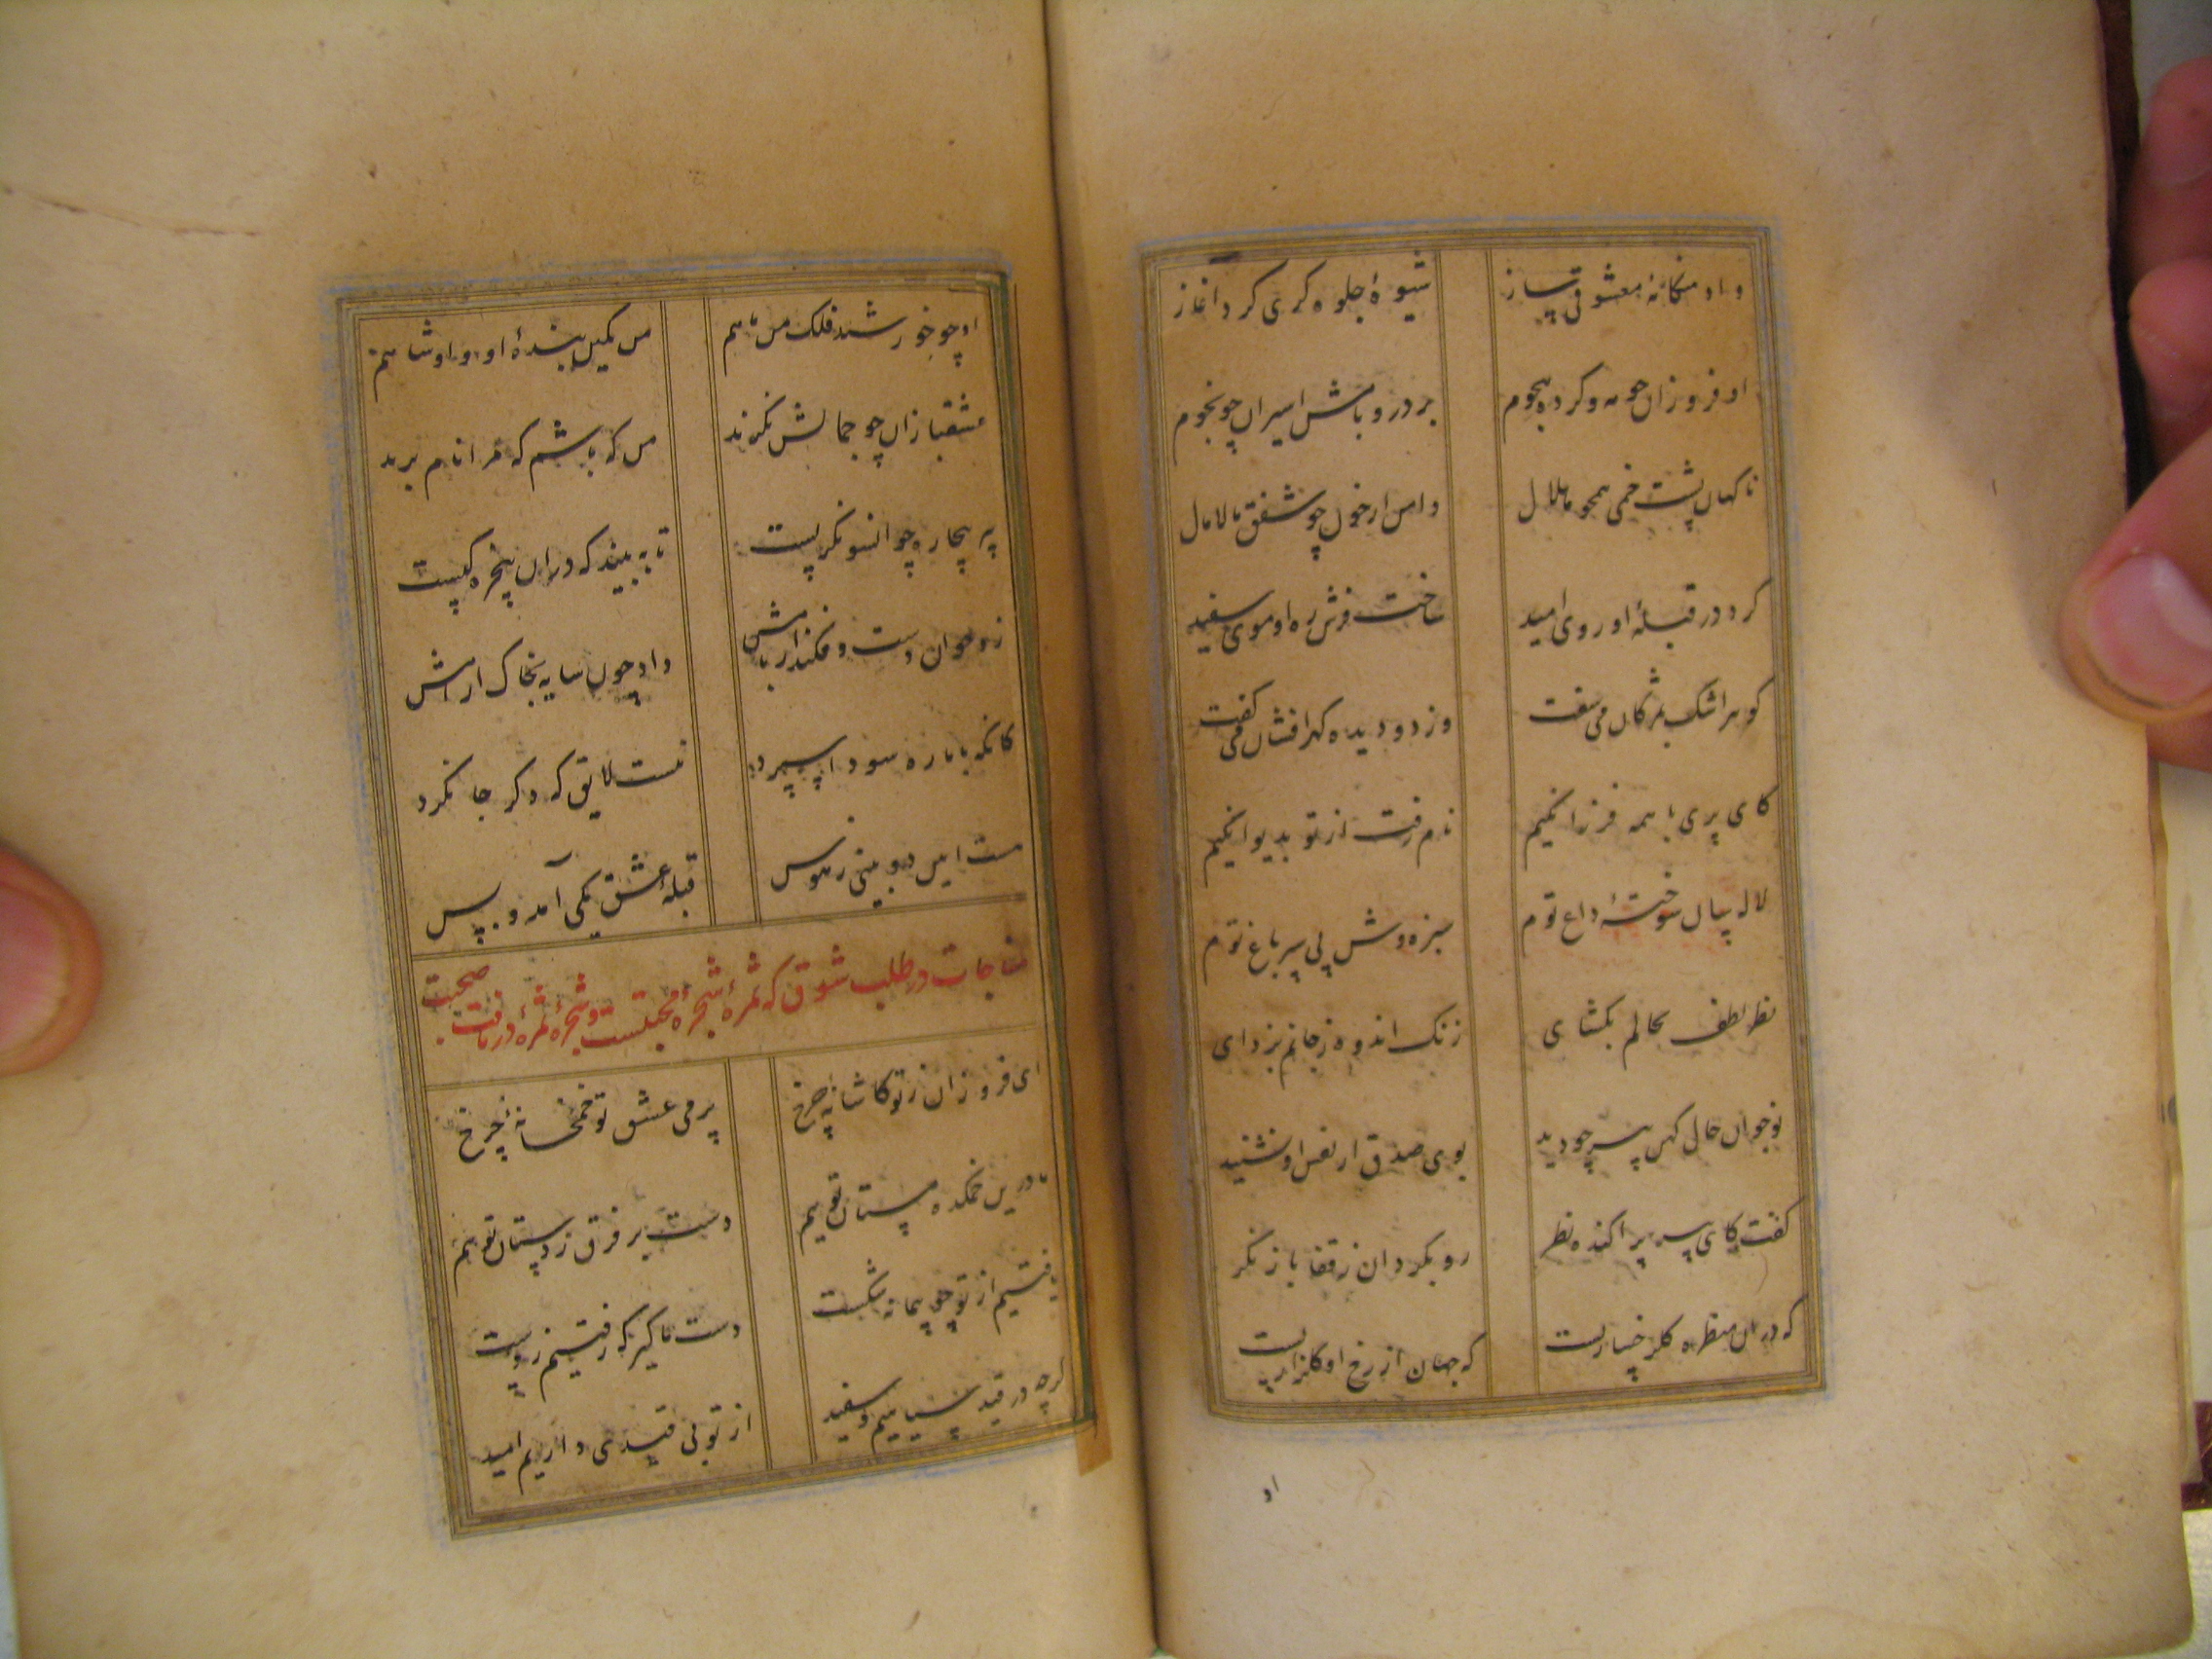 داد هنگامه معشوقی ساز
شیوهٔ جلوه کری کرد اغاز
او فروزان چو مه و کرده هجوم
بر در و بامش اسیران چو نجوم
ناکهان پشت خمی همچو هلال
دامن از خون چو شفق مالامال
کرد در قبلهٔ او روی امید
ساخت فرش ره او موی سفید
کوهر اشک بمژکان می سفت
وز دو دیده کهر افشان می کفت
کای پری با همه فرزانکیم
نام رفت از تو بدیوانکیم
لاله سان سوختهٔ داغ توم
سبزه وش پی سپر باغ توم
نظر لطف بحالم بکشای
زنک اندوه ز جانم بزدای
نوجوان حال کهن پیر چو دید
بوی صدق از نفس او نشنید
کفت کای پیر پراکنده نظر
رو بکردان ز قفا باز نکر
که دران منظره کلرخساریست
که جهان از رخ او کلزاریست
او
او چو خورشید فلک من ماهم
من کمین بندهٔ او او شاهم
عشقبازان چو جمالش نکرند
من که باشم که مرا نام برند
پیر بیچاره چو انسو نکریست
تا به بیند که دران پنجره کیست
زد جوان دست و فکند از بامش
داد چون سایه بخاک ارامش
کانکه با ما ره سودا سپرد
نیست لایق که دکر جا نکرد
هست ایین دو بینی ز هوس
قبلهٔ عشق یکی آمد و بس
مناجات در طلب شوق که ثمرهٔ شجرهٔ محبتست و شجرهٔ ثمرهٔ دریافت صحبت
ای فروزان ز تو کاشانه چرخ
پر می عشق تو خمخانهٔ چرخ
ما درین خمکده مستان توییم
دست بر فرق ز دستان توییم
یافتیم از تو چو پیمانه شکست
دست ما کیر که رفتیم ز دست
کرچه در قید سیاهیم و سفید
از تو بی قیدی داریم امید